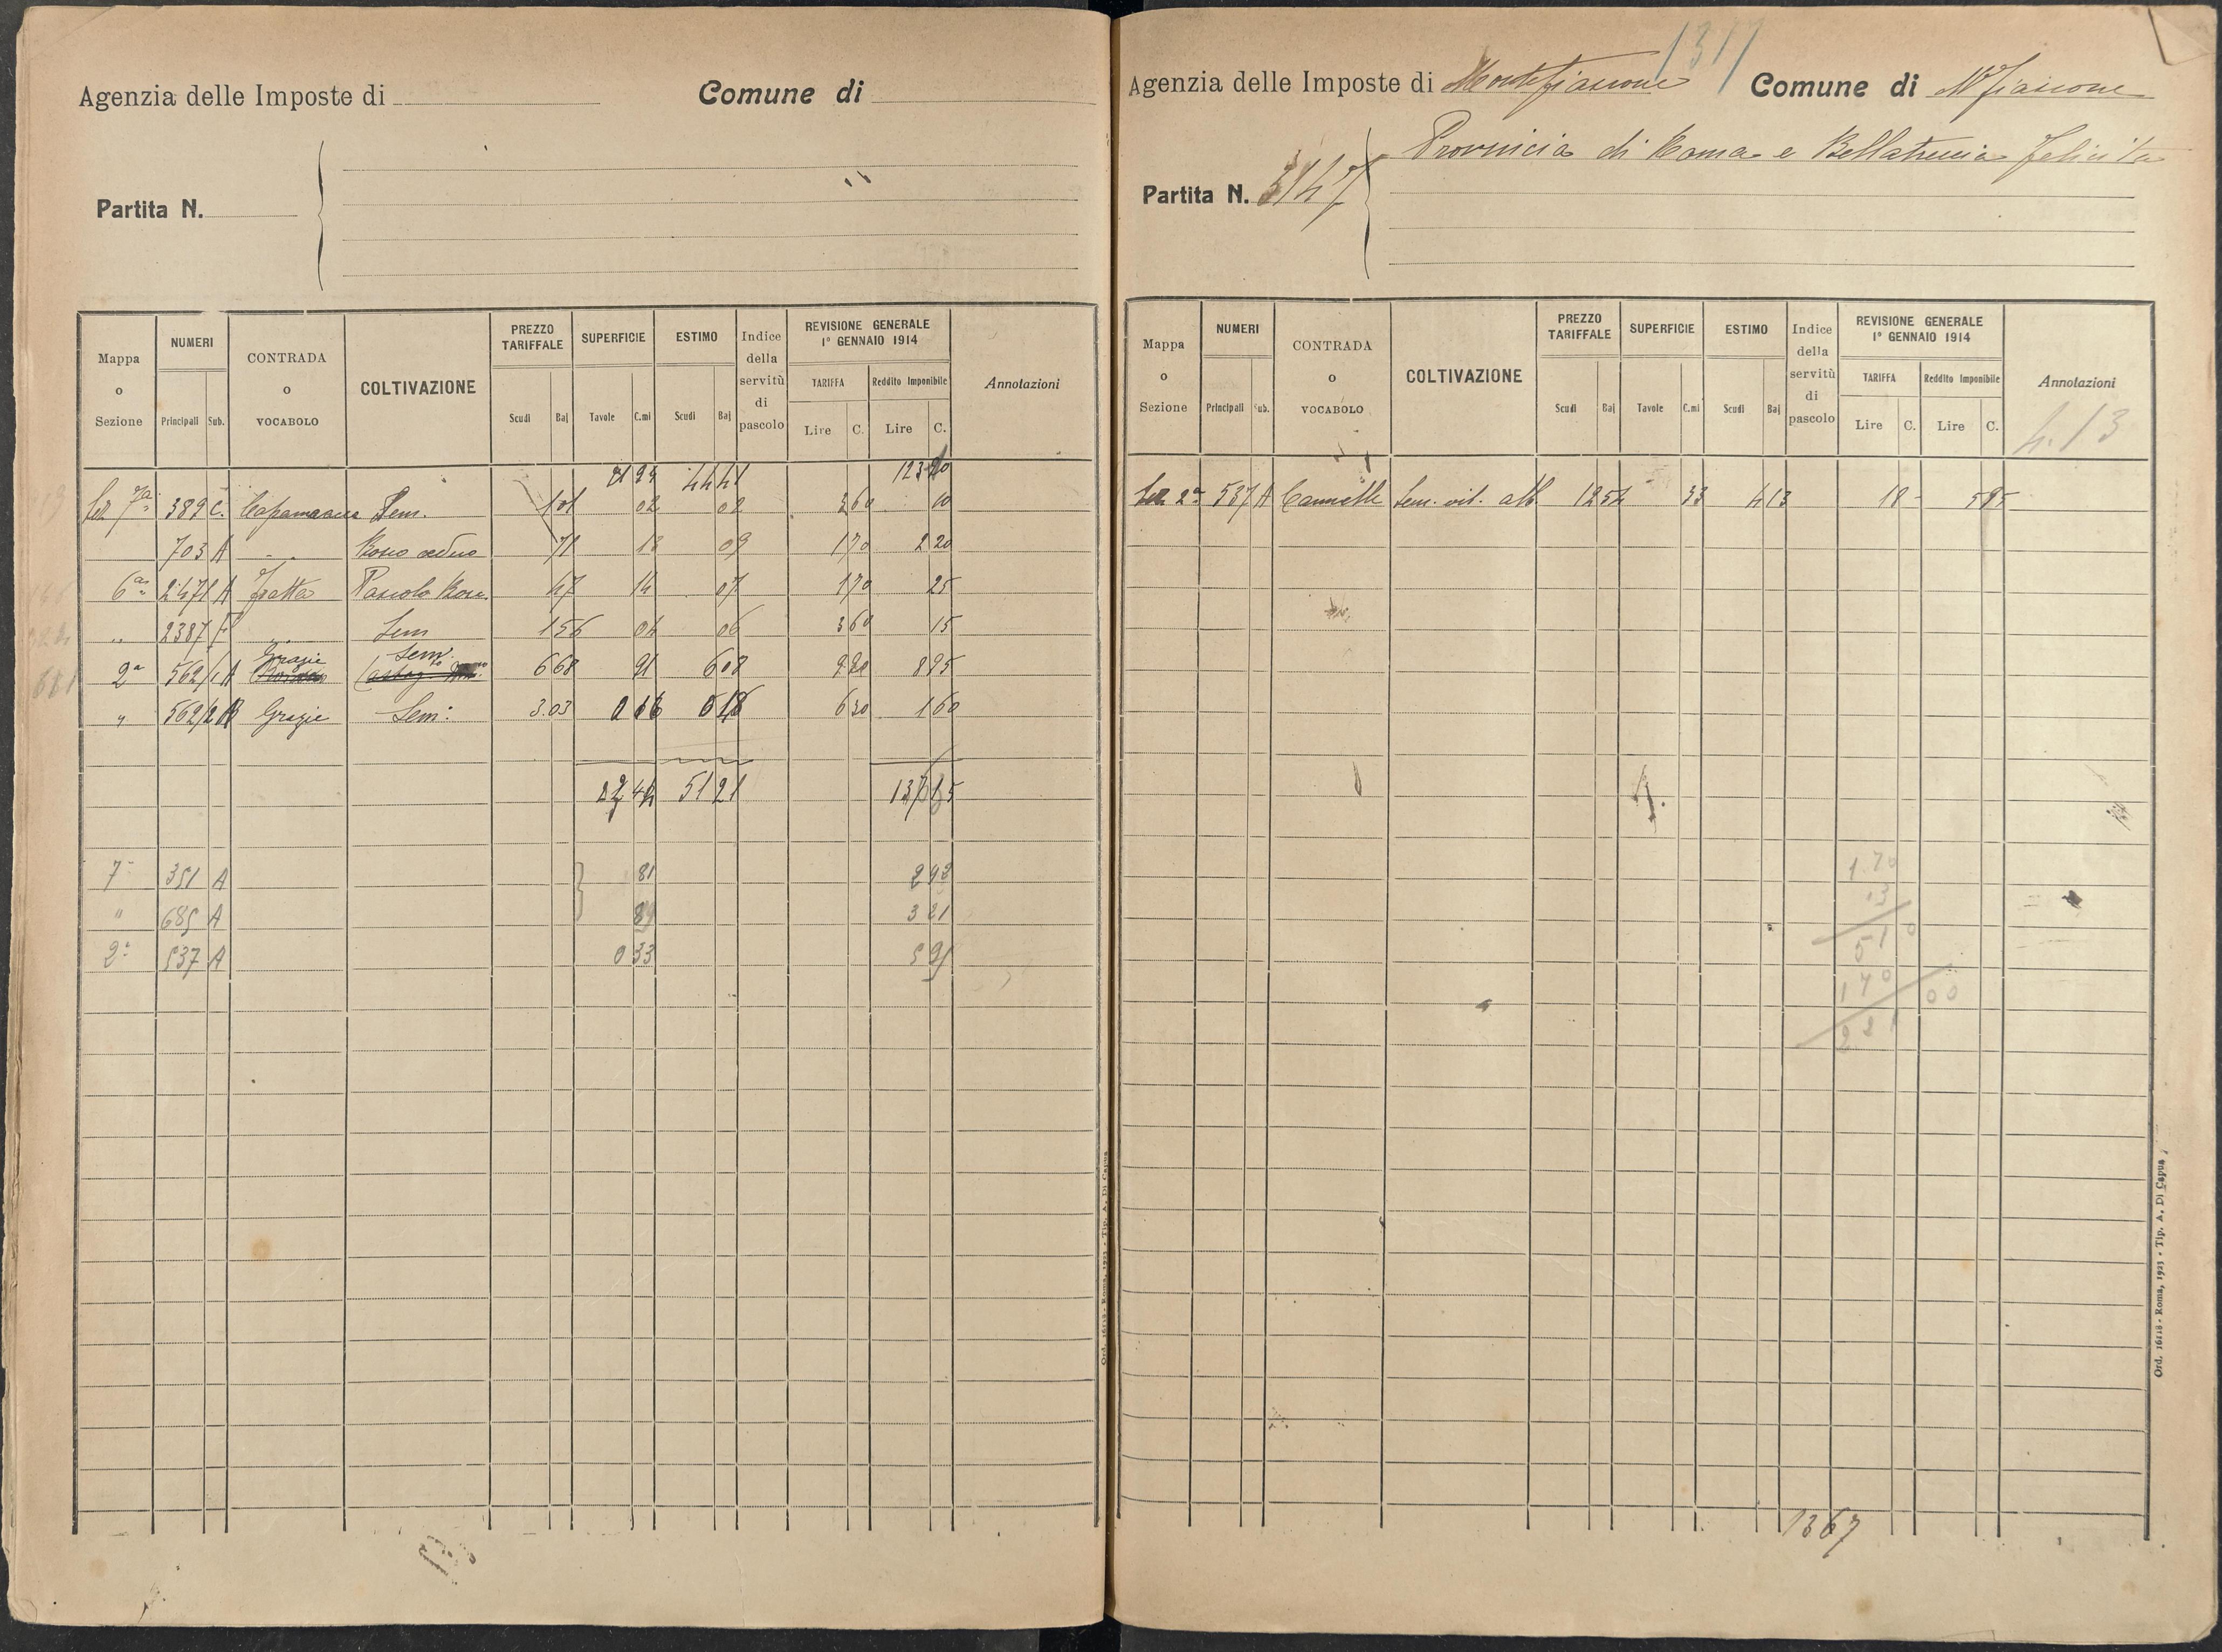 Agenzia delle Imposte di Comune di
Partita N.
Mappa o Sezione NUMERI Principali Sub. CONTRADA o VOCABOLO COLTIVAZIONE PREZZO TARIFFALE Scudi Baj SUPERFICIE Tavole C.mi ESTIMO Scudi Baj Indice della servitù di pascolo REVISIONE GENERALE 1° GENNAIO 1914 TARIFFA Lire C. Reddito Imponibile Lire C. Annotazioni
44 41 123 20
Sez 7a 389 C. Sem. 1 01 02 02 3 60 10
703 A " Bosco ceduo 71 13 09 1 70 2 20
6a 2471 A Fratta Pascolo Bosc. 47 14 07 1 70 25
" 2387 F " Sem 1 56 04 06 3 60 15
2a 562/1 A Grazie Sem. 6 68 91 6 08 8 95
" 562/2 Grazie Sem: 3.03 6 30 1 60
51 21
7 351 A 81 2 93
" 685 A 89 3 21
2a 537 A 0 33 5 95
Ord. 16118 - Roma, 1923 - Tip. A. Di Capua
1317
Agenzia delle Imposte di Montefiascone Comune di Mfiascone
Provincia di Roma e Bellatreccia Felicita
Partita N. 3147
Mappa o Sezione NUMERI Principali Sub. CONTRADA o VOCABOLO COLTIVAZIONE PREZZO TARIFFALE Scudi Baj SUPERFICIE Tavole C.mi ESTIMO Scudi Baj Indice della servitù di pascolo REVISIONE GENERALE 1° GENNAIO 1914 TARIFFA Lire C. Reddito Imponibile Lire C. Annotazioni
4.13
Sez 2a 537 A Cannelle Sem. vit. alb 12 52 33 4 13 18 - 5 95
1.70
13
51 0
170
00
221
1367
Ord. 16118 - Roma, 1923 - Tip. A. Di Capua